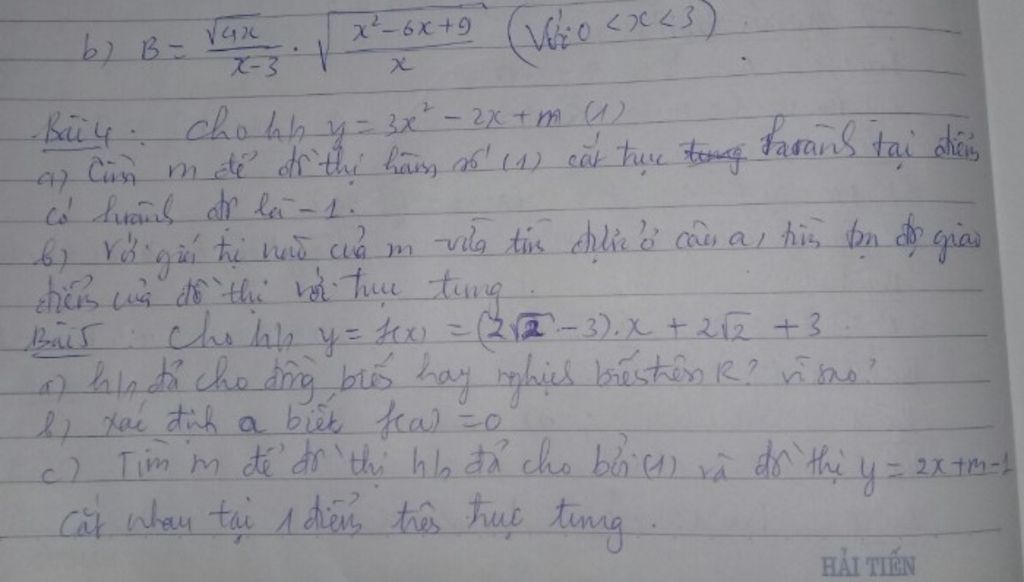 b) B = √4x / x-3 . √(x² - 6x + 9 / x) (Với 0 < x < 3)
Bài 4. Cho hàm y = 3x² - 2x + m (1)
a) Tìm m để đồ thị hàm số (1) cắt trục tung hoành tại điểm
có hoành độ là -1.
b) Với giá trị nào của m vừa tìm được ở câu a, tìm tọa độ giao
điểm của đồ thị với trục tung.
Bài 5: Cho hàm y = f(x) = (2√2 - 3).x + 2√2 + 3.
a) h/s đã cho đồng biến hay nghịch biến trên R? vì sao?
b) xác định a biết f(a) = 0
c) Tìm m để đồ thị h/s đã cho bởi (1) và đồ thị y = 2x+m-1
cắt nhau tại 1 điểm trên trục tung.
HẢI TIẾN